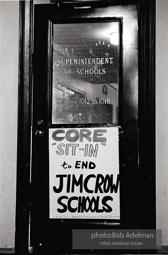 SUPERINTENDENT
OF SCHOOLS
CORE
"SIT-IN"
to END
JIMCROW
SCHOOLS
photo:Bob Adelman
©Bob Adelman Estate